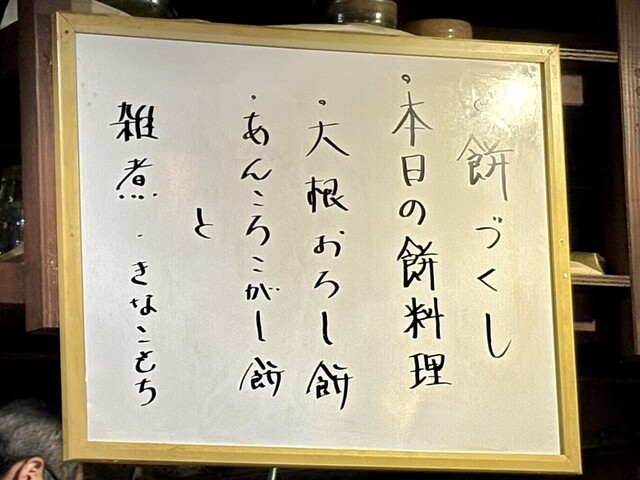 餅づくし
・本日の餅料理
・大根おろし餅
・あんころこがし餅
と
雑煮・きなこもち